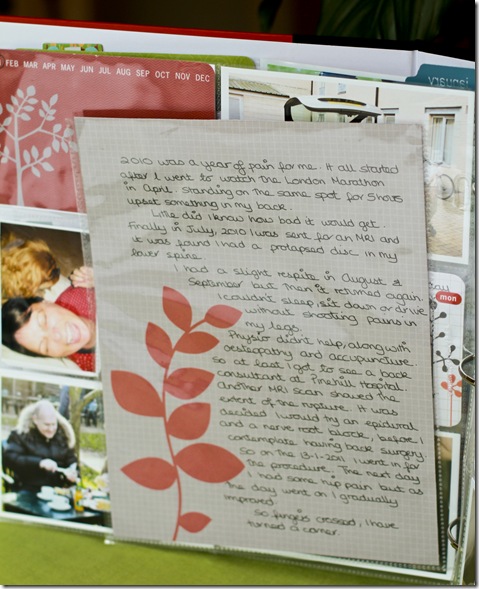 FEB MAR APR MAY JUN JUL AUG SEP OCT NOV DEC
January
2010 was a year of pain for me. It all started
after I went to watch the London Marathon
in April. Standing on the same spot for 5 hours
upset something in my back.
Little did I know how bad it would get.
Finally in July, 2010 I was sent for an MRI and
it was found I had a prolapsed disc in my
lower spine.
I had a slight respite in August &
September but then it returned again.
I couldn't sleep, sit down or drive
without shooting pains in
my legs.
Physio didn't help, along with
osteopathy and accupuncture.
So at last I got to see a back
consultant at Pinehill Hospital.
Another MRI scan showed the
extent of the rupture. It was
decided I would try an epidural
and a nerve root block, before I
contemplate having back surgery.
So on the 13-1-2011 I went in for
the procedure. The next day
I had some hip pain but as
the day went on I gradually
improved.
So fingers crossed, I have
turned a corner.
mon